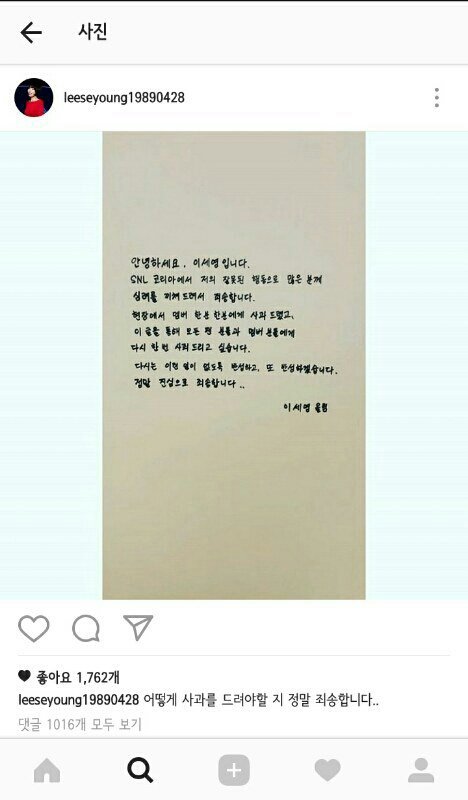 사진
leeseyoung19890428
안녕하세요. 이세영입니다.
SNL 코리아에서 저의 잘못된 행동으로 많은 분께
심려를 끼쳐드려서 죄송합니다.
현장에서 멤버 한분 한분에게 사과 드렸고,
이 글을 통해 모든 팬 분들과 멤버 분들에게
다시 한 번 사과 드리고 싶습니다.
다시는 이런 일이 없도록 반성하고, 또 반성하겠습니다.
정말 진심으로 죄송합니다..
이세영 올림
좋아요 1,762개
leeseyoung19890428 어떻게 사과를 드려야할 지 정말 죄송합니다..
댓글 1016개 모두 보기